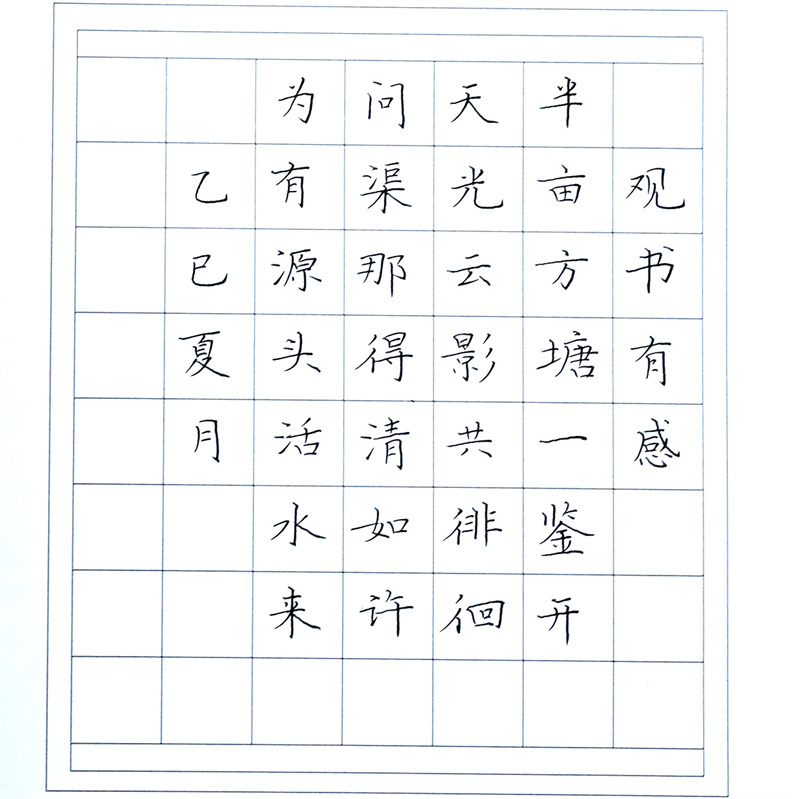 观书有感
半亩方塘一鉴开
天光云影共徘徊
问渠那得清如许
为有源头活水来
乙巳夏月